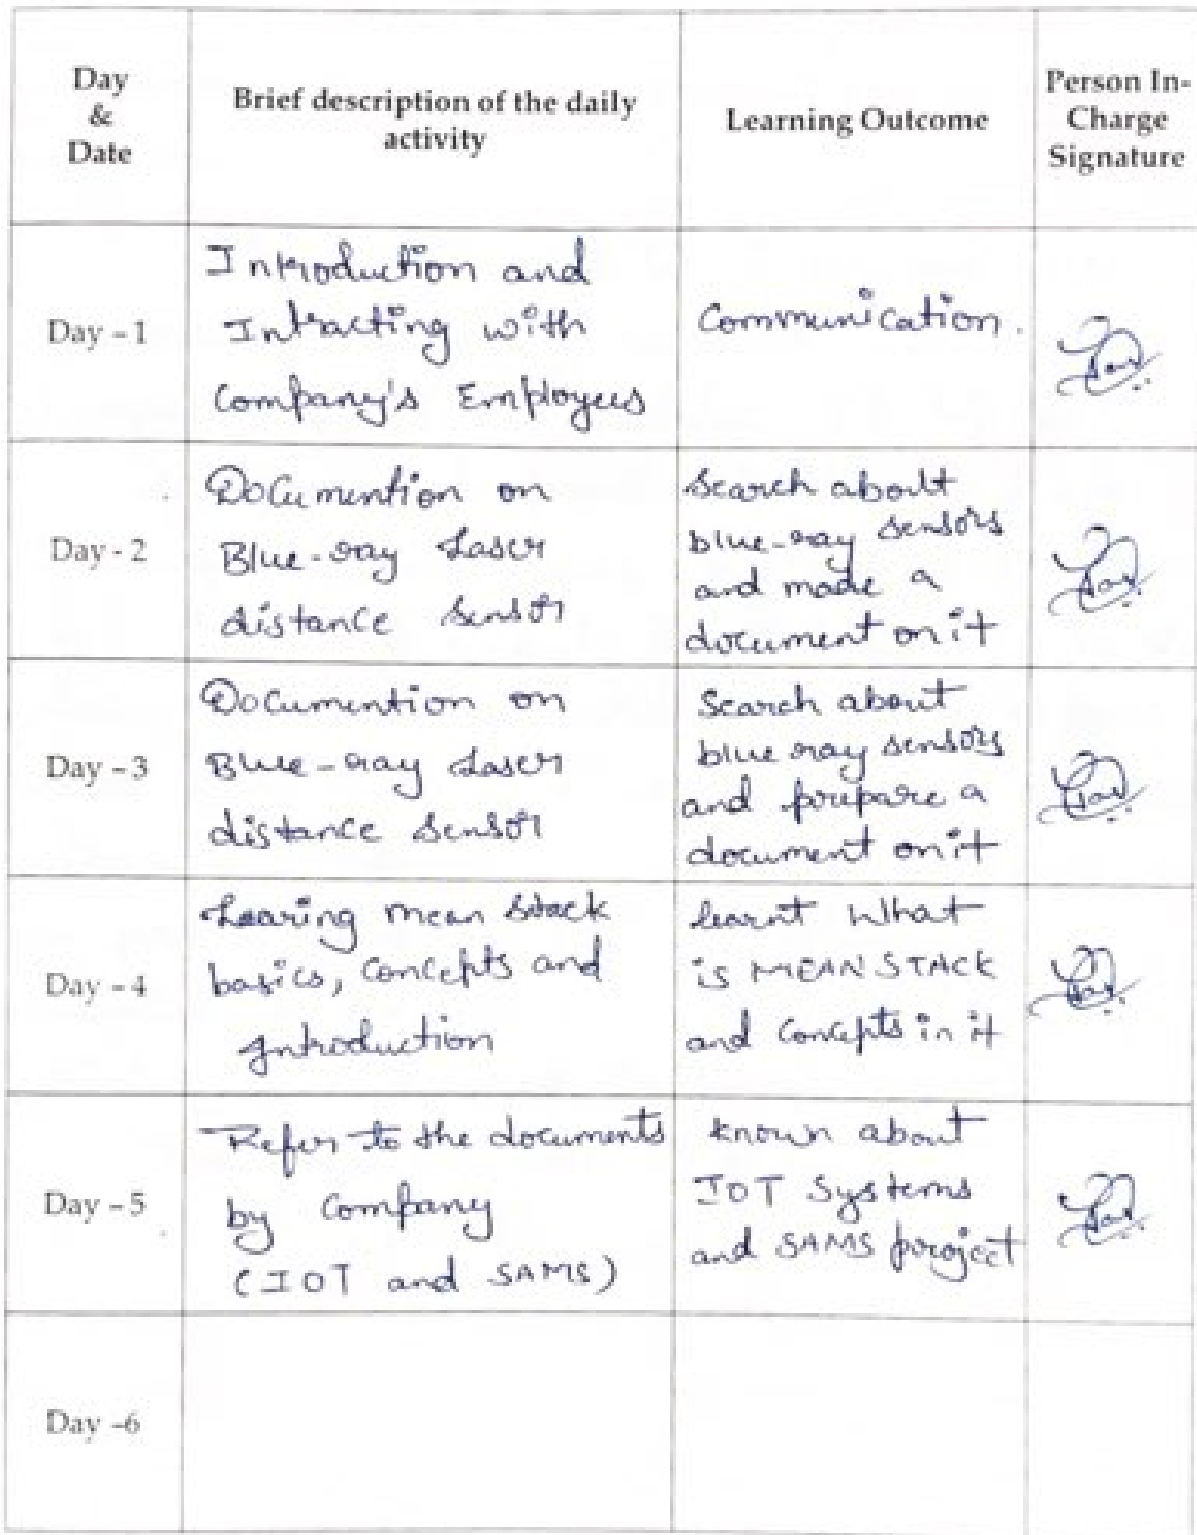 Day
&
Date
Brief description of the daily
activity
Learning Outcome
Person In-
Charge
Signature
Day - 1
Introduction and
Intracting with
Company's Employees
Communication.
Day - 2
Documention on
Blue-ray Laser
distance sensor
Search about
blue-ray sensors
and made a
document on it
Day - 3
Documention on
Blue-ray Laser
distance sensor
Search about
blue ray sensors
and prepare a
document on it
Day - 4
Learing mean stack
basics, concepts and
Introduction
learnt What
is MEAN STACK
and concepts in it
Day - 5
Refer to the documents
by Company
(IOT and SAMS)
known about
IOT Systems
and SAMS project
Day -6